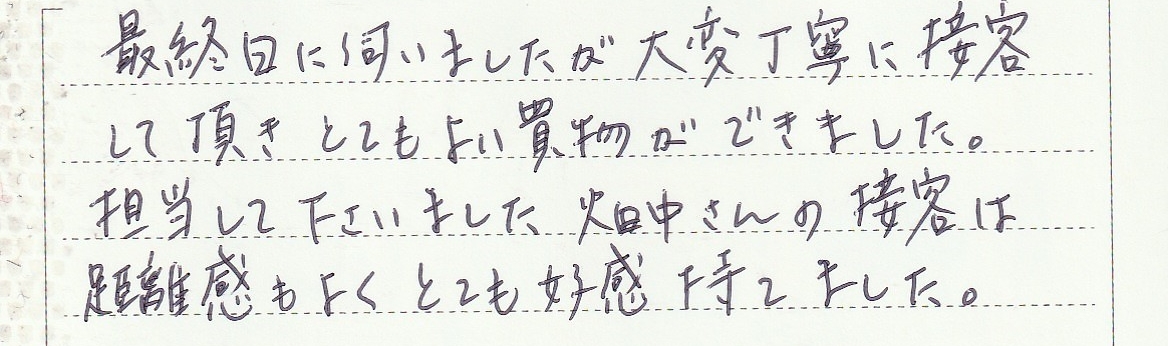 最終日に伺いましたが大変丁寧に接客
して頂きとてもよい買物ができました。
担当して下さいました畑中さんの接客は
距離感もよくとても好感持てました。